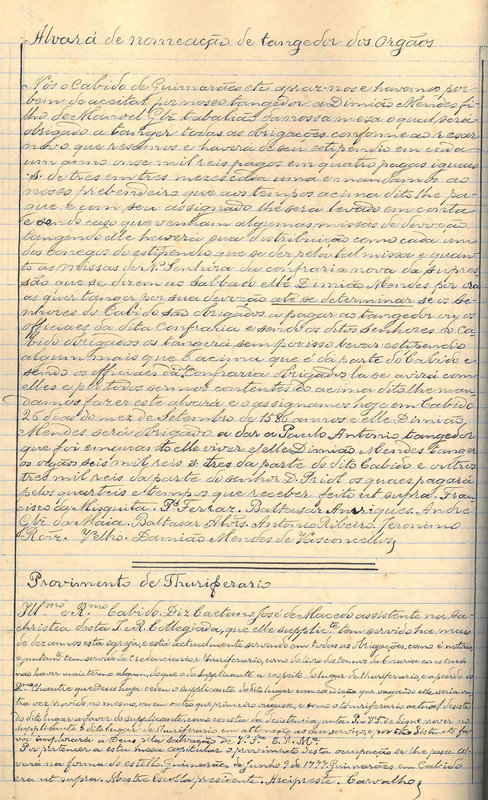 Alvará de nomeação de tangedor dos orgãos
Nós o Cabido de Guimarães etc apraz-nos e havemos por
bem de aceitar por nosso tangedor a Dimião Mendes fi-
lho de Manoel Glz tabalião da nossa mesa o qual será
obrigado a tanger todas as obrigações conforme ao resar
novo que resamos e haverá de seu estipendio em cada
um anno onse mil reis pagos em quatro pagas iguaes
s. de tres em tres mezes cada uma e mandamos ao
nosso prebendeiro que aos tempos acima dito lhe pa-
gue e com seu assignado lhe será levado em conta
e sendo caso que venham algumas missas de devoção
tangendo elle haverá sua distribuição como cada um
dos conegos do estipendio que se der pela tal missa e quan-
to ás missas de N. Senhora da confraria nova da
que se dizem ao Sabbado elle Dimião Mendes por ora
as quer tanger por sua devoção até se determinar se os Se-
nhores do Cabido são obrigados a pagar ao tangedor ou os
officiaes da dita Confraria e sendo os ditos Senhores do Ca-
bido obrigados os tangerá sem por isso levar estipendio
algum mais que o acima que é da parte do Cabido e
sendo os officiaes da dita Confraria obrigados lá se avirá com
elles e por todos sermos contentes do acima dito lhe man-
damos fazer este alvará e o assignamos hoje em Cabido
26 dias do mez de Setembro de 1586 annos e elle Dimião
Mendes será obrigado a dar a Paulo Antonio tangedor
que foi emquanto elle viver e elle Dimião Mendes tanger
os orgãos seis mil reis s. tres da parte do dito Cabido e outros
tres mil reis da parte do senhor D. Priol os quaes pagará
pelos quarteis e tempos que receber feito ut supra. Fran-
cisco da Misquita. P. Ferraz. Balthasar Anriques. André
Glz da Maia. Baltasar Alvrs. Antonio Ribeiro. Jeronimo
Roiz. Velho. Damião Mendes de Vasconcellos,
Provimento de Thuriferario
Ill.mo e R.mo Cabido. Diz Caetano José de Macedo assistente na Sa-
christia desta I. e R. Collegiada, que elle supplic.te tem servido ha mais
de dez annos esta egreja, e está actualmente servindo em todas as obrigações, como é notorio,
e juntam.te tem servido de Credenciario e Thuriferario, como do livro dos termos
não haver mais termo algum, do que o do supplicante a respeito do lugar de thuriferario,
R. Chantre que Deus haja cedeu o supplicante do dito lugar com condição que vagando elle seria ou-
tra vez provido no mesmo, ou em outro que primeiro vagasse, e como o thuriferario actual desis-
tiu do dito lugar a favor do supplicante, como consta da desistencia junta P. a V. S.as se digne prover no
supplicante o dito lugar de Thuriferario em attenção ao seu serviço, e por este
vor implorará a Deus pela dilatação de V. S.as E. R. M.ce
Por pertencer a esta mesa capitular o provimento desta occupação se lhe passe Al-
vará na forma do estillo. Guimarães de Junho 9 de 1777. Guimarães em Cabido
era ut supra. Mestre Escolla presidente. Arcipreste. Carvalho,